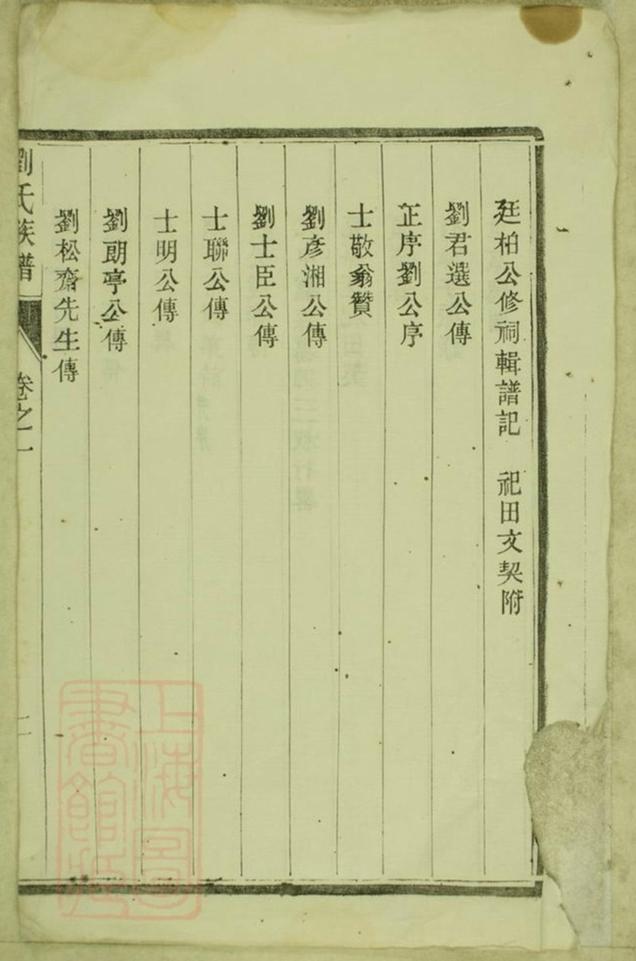 廷柏公修祠輯譜記　祀田文契附
劉君選公傳
正序劉公序
士敬翁贊
劉彥湘公傳
劉士臣公傳
士聯公傳
士明公傳
劉朗亭公傳
劉松齋先生傳
劉氏族譜
卷之一
上海圖書館藏